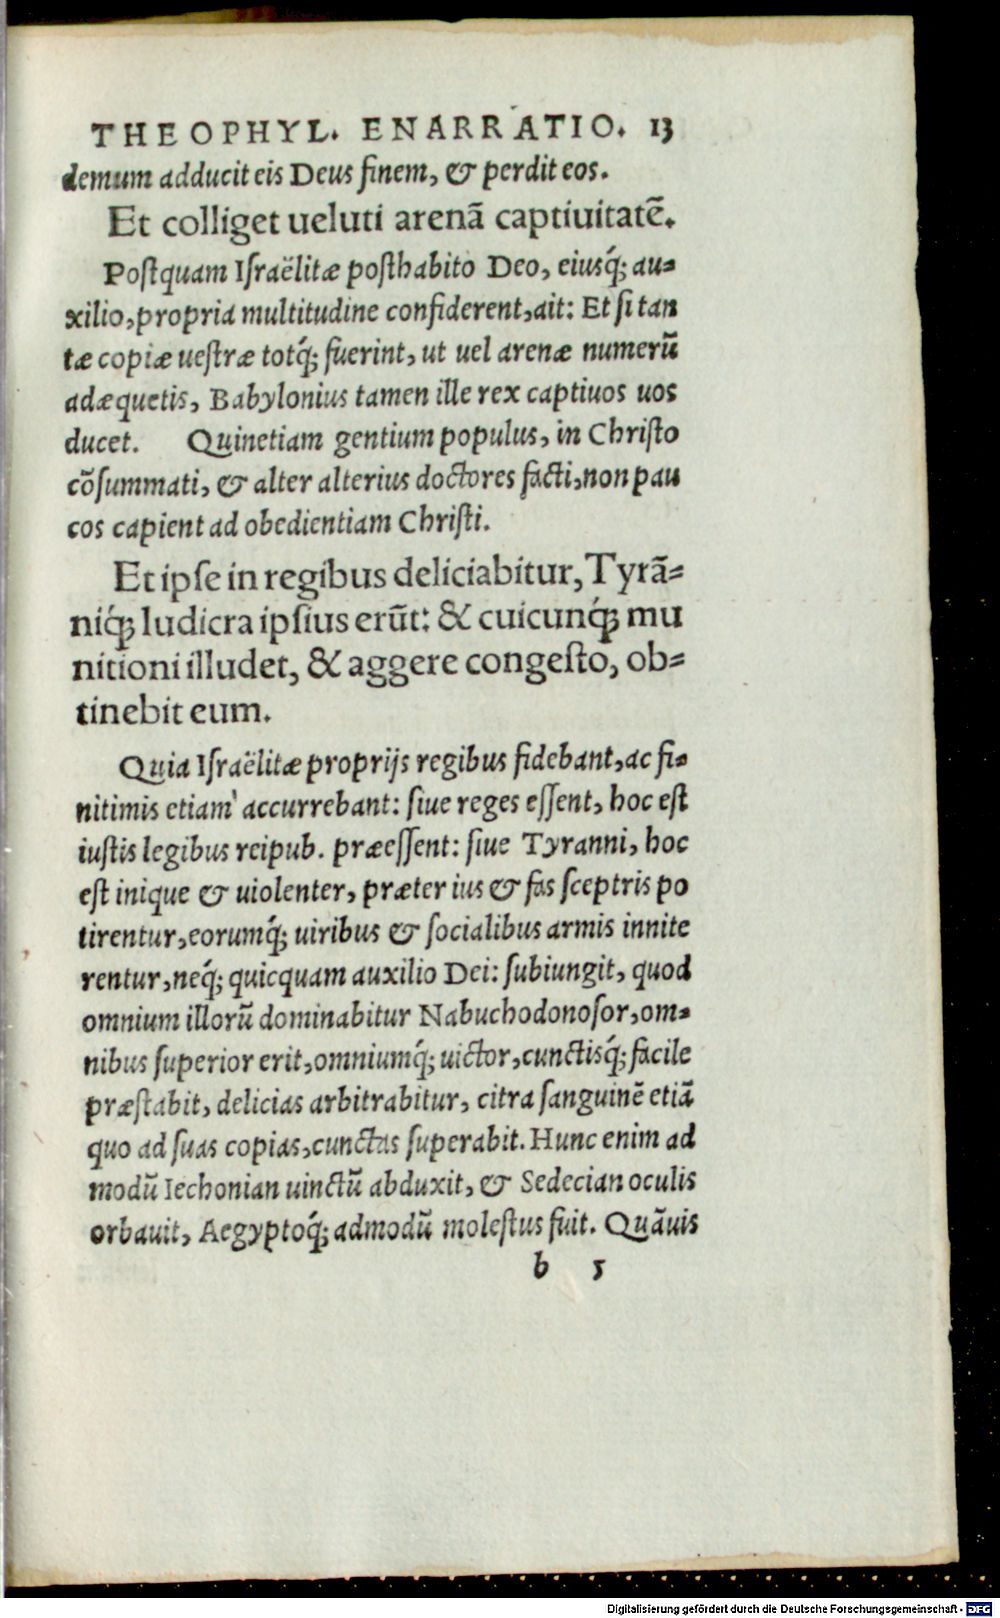 THEOPHYL. ENARRATIO. 13
demum adducit eis Deus finem, & perdit eos.
Et colliget ueluti arenã captiuitatẽ.
Postquam Israëlitæ posthabito Deo, eiusq́; au-
xilio, propria multitudine confiderent, ait: Et si tan
tæ copiæ uestræ totq́; fuerint, ut uel arenæ numerũ
adæquetis, Babylonius tamen ille rex captiuos uos
ducet. Quinetiam gentium populus, in Christo
cõsummati, & alter alterius doctores facti, non pau
cos capient ad obedientiam Christi.
Et ipse in regibus deliciabitur, Tyrã-
niq́; ludicra ipsius erũt: & cuicunq́; mu
nitioni illudet, & aggere congesto, ob-
tinebit eum.
Quia Israëlitæ proprijs regibus fidebant, ac fi-
nitimis etiam accurrebant: siue reges essent, hoc est
iustis legibus reipub. præessent: siue Tyranni, hoc
est inique & uiolenter, præter ius & fas sceptris po
tirentur, eorumq́; uiribus & socialibus armis innite
rentur, neq́; quicquam auxilio Dei: subiungit, quod
omnium illorũ dominabitur Nabuchodonosor, om-
nibus superior erit, omniumq́; uictor, cunctisq́; facile
præstabit, delicias arbitrabitur, citra sanguinẽ etiã
quo ad suas copias, cunctas superabit. Hunc enim ad
modũ Iechonian uinctũ abduxit, & Sedecian oculis
orbauit, Aegyptoq́; admodũ molestus fuit. Quãuis
b 5
Digitalisierung gefördert durch die Deutsche Forschungsgemeinschaft - DFG